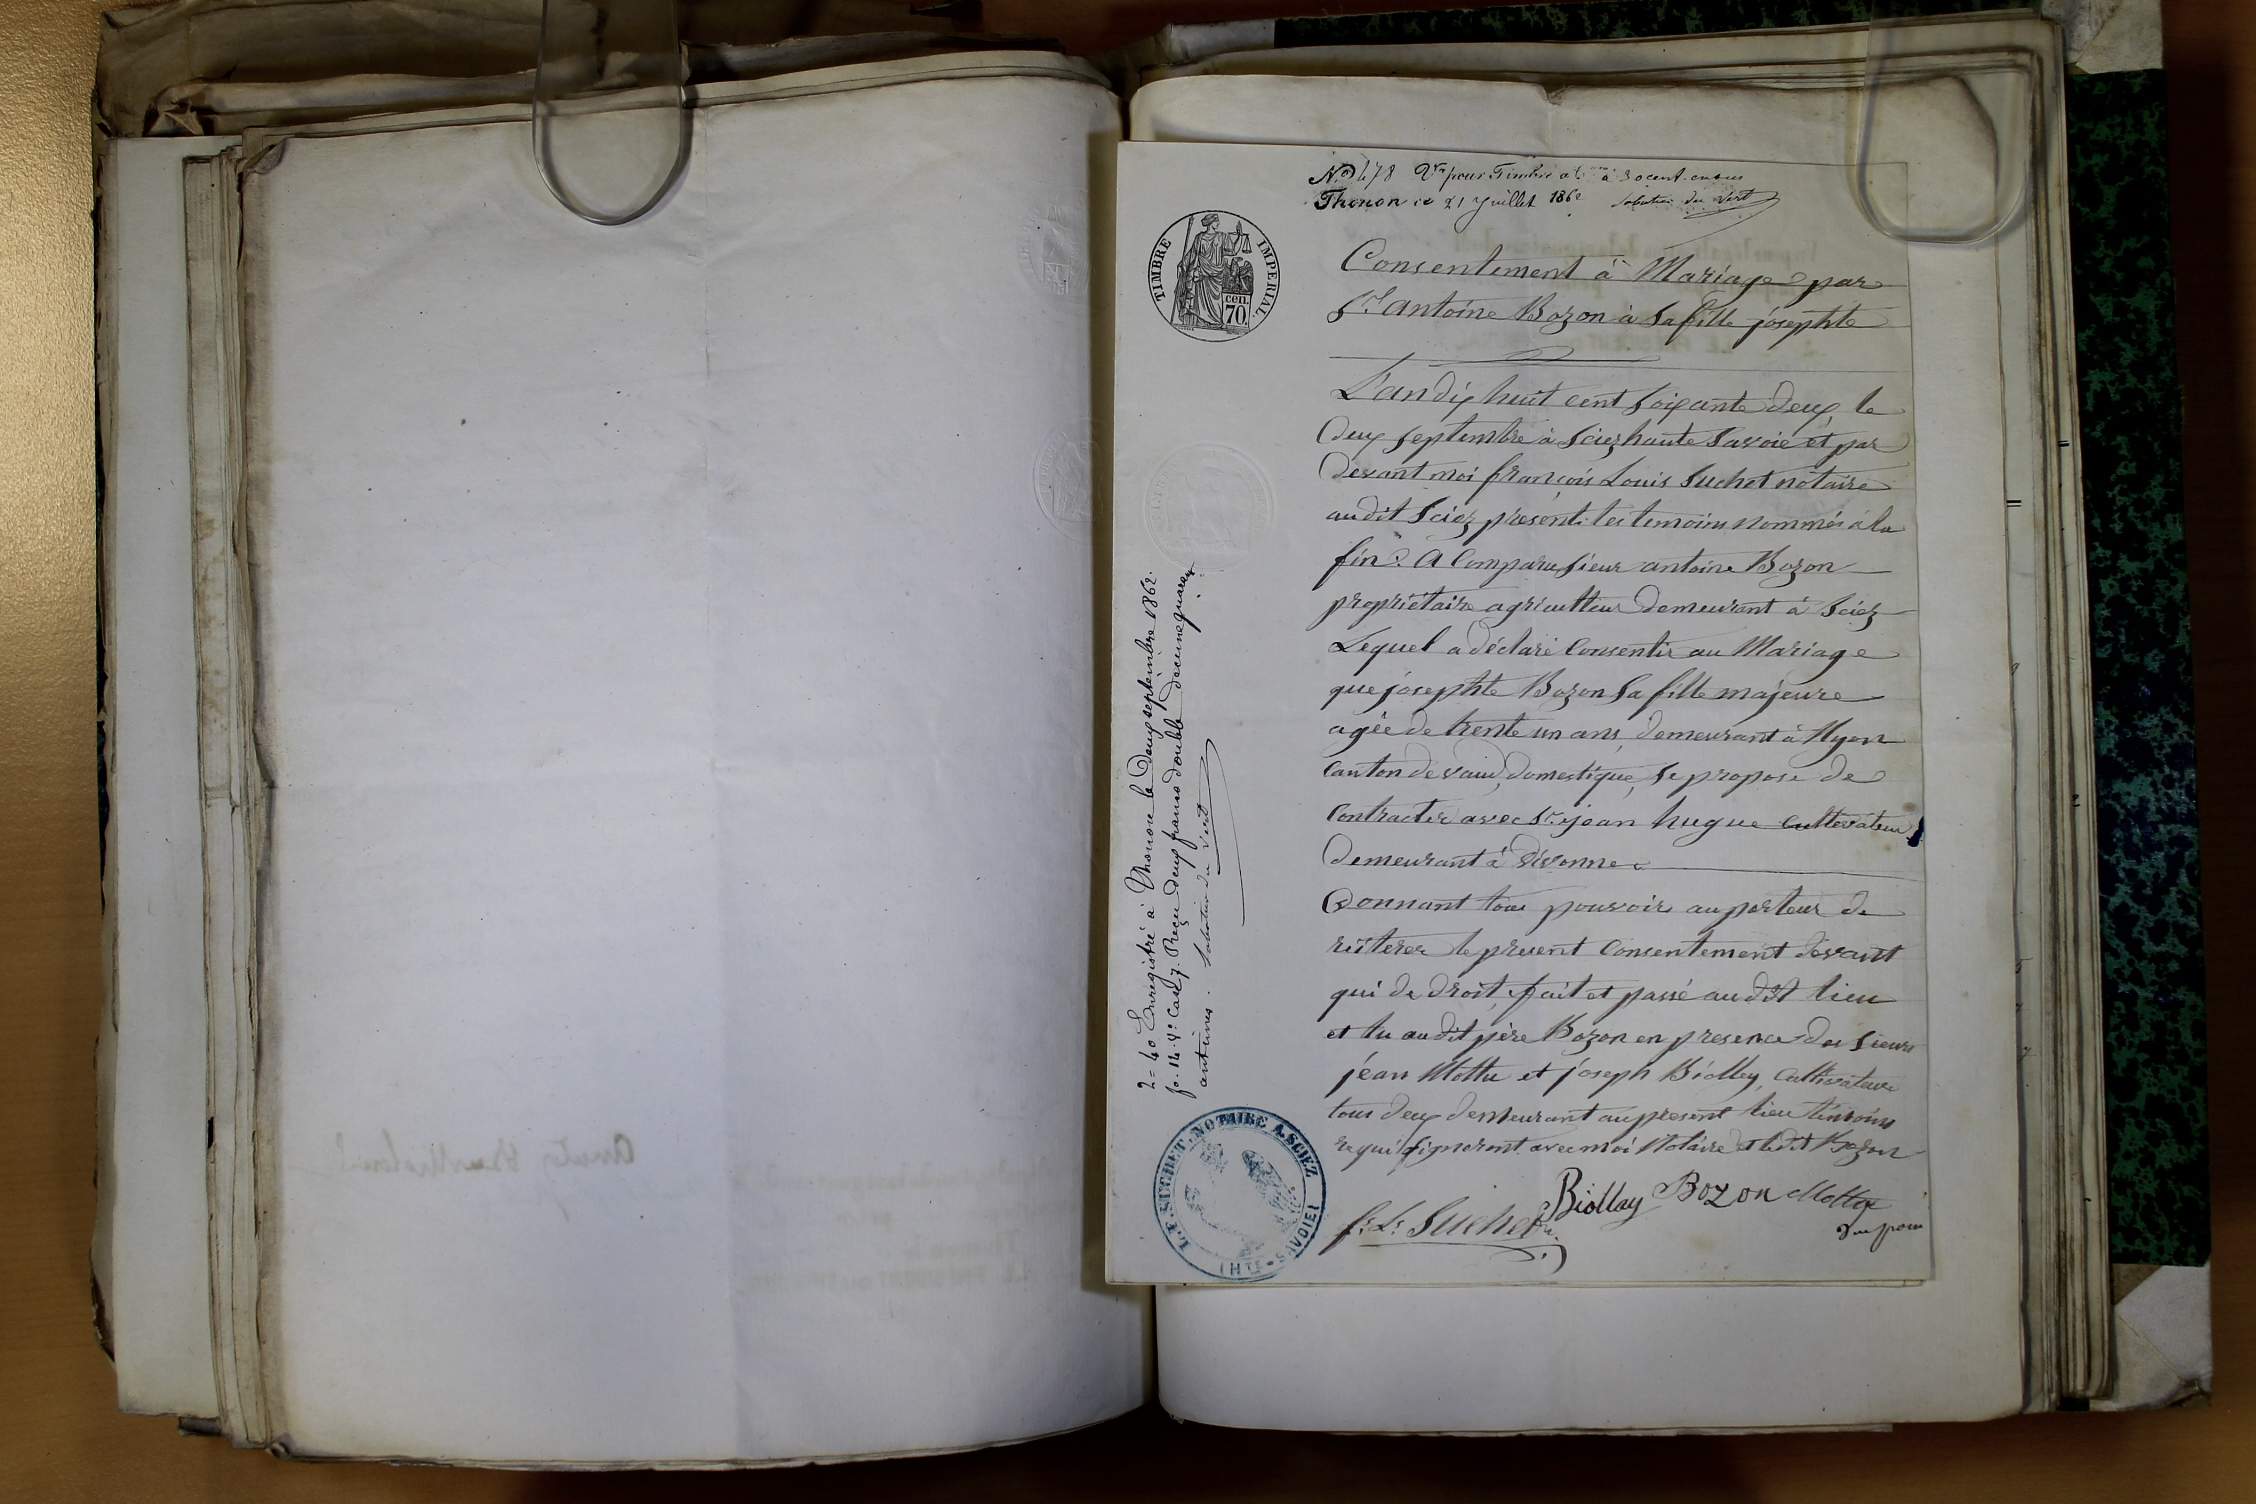 N.º 478 Vu pour Timbre à 30 cent. en sus
Thonon le 21 Juillet 1862
TIMBRE IMPERIAL
cen.
70.
Consentement à Mariage par
Sr antoine Bozon à Sa fille josephte
L'an dix huit cent Soixante deux, le
Deux Septembre à Sciez haute Savoie et par
devant moi françois Louis Suchet notaire
au dit Sciez présents les temoins nommés à la
fin. A Comparu Sieur antoine Bozon
propriétaire agriculteur demeurant à Sciez
Lequel a déclaré Consentir au Mariage
que josephte Bozon Sa fille majeure
agée de trente un ans, demeurant à Nyon
Canton de vaud, domestique, Se propose de
Contracter avec Sr jean hugue Cultivateur
demeurant à divonne
Donnant tous pouvoirs au porteur de
réïterer le présent Consentement devant
qui de droit, fait et passé au dit lieu
et lu au dit père Bozon en presence des Sieurs
jean Mottu et joseph Biollay, Cultivateurs
tous deux demeurant au present lieu témoins
requis Signeront avec moi Notaire et le dit Bozon
Biollay Bozon Mottu
fs Ls Suchet
2=40 Enregistré à Thonon le Douze septembre 1862.
fo. 114 Vo Case 7. Reçu deux francs double decime quarante
centimes.
L. F. SUCHET. NOTAIRE A SCIEZ
(HTE-SAVOIE)